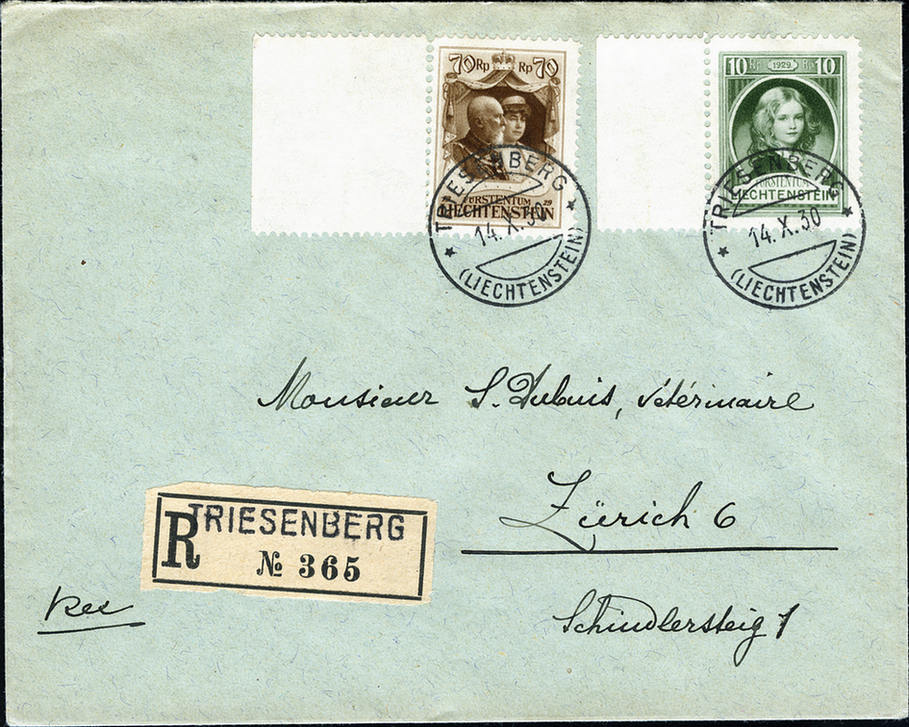 70 Rp Rp 70
19 29
FÜRSTENTUM
LIECHTENSTEIN
10 Rp 1929 Rp 10
FÜRSTENTUM
LIECHTENSTEIN
TRIESENBERG
14.X.30
(LIECHTENSTEIN)
TRIESENBERG
14.X.30
(LIECHTENSTEIN)
Monsieur S. Dubuis, vétérinaire
Zürich 6
Schindlersteig 1
R TRIESENBERG
№ 365
Rec